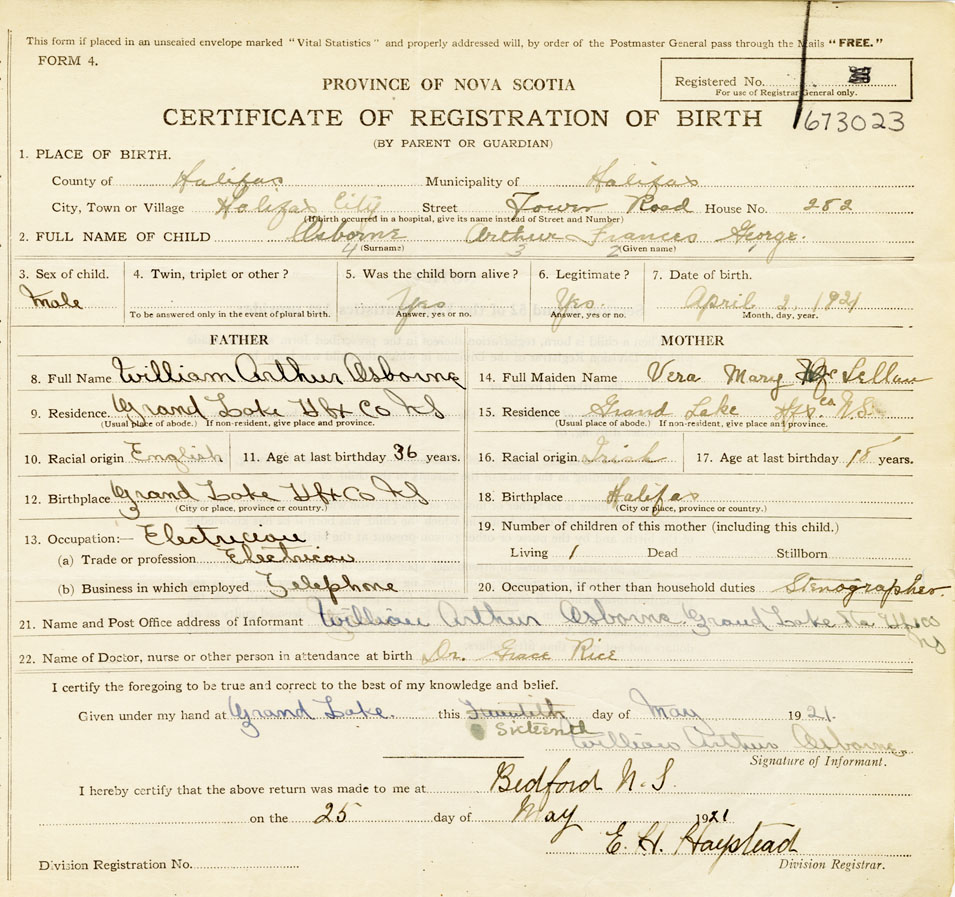 This form if placed in an unsealed envelope marked "Vital Statistics" and properly addressed will, by order of the Postmaster General pass through the Mails "FREE."
FORM 4.
Registered No.
For use of Registrar General only.
PROVINCE OF NOVA SCOTIA
CERTIFICATE OF REGISTRATION OF BIRTH
673023
(BY PARENT OR GUARDIAN)
1. PLACE OF BIRTH.
County of Halifax Municipality of Halifax
City, Town or Village Halifax City Street Tower Road House No. 252
(If birth occurred in a hospital, give its name instead of Street and Number)
2. FULL NAME OF CHILD Osborne Arthur Frances George.
4 (Surname) 3 2 (Given name)
3. Sex of child. 4. Twin, triplet or other? 5. Was the child born alive? 6. Legitimate? 7. Date of birth.
Male Yes Yes. April 2, 1921
To be answered only in the event of plural birth. Answer, yes or no. Answer, yes or no. Month, day, year.
FATHER MOTHER
8. Full Name William Arthur Osborne 14. Full Maiden Name Vera Mary
9. Residence. Grand Lake Hfx Co NS 15. Residence Grand Lake Hfx. Co N.S.
(Usual place of abode.) If non-resident, give place and province. (Usual place of abode.) If non-resident, give place and province.
10. Racial origin English 11. Age at last birthday 36 years. 16. Racial origin Irish 17. Age at last birthday 18 years.
12. Birthplace Grand Lake Hfx Co NS 18. Birthplace Halifax
(City or place, province or country.) (City or place, province or country.)
13. Occupation:— Electrician 19. Number of children of this mother (including this child.)
(a) Trade or profession Electrician Living 1 Dead Stillborn
(b) Business in which employed Telephone 20. Occupation, if other than household duties Stenographer.
21. Name and Post Office address of Informant William Arthur Osborne. Grand Lake Sta Hfx Co
NS
22. Name of Doctor, nurse or other person in attendance at birth Dr. Grace Rice
I certify the foregoing to be true and correct to the best of my knowledge and belief.
Given under my hand at Grand Lake. this Twentieth day of May 1921.
Sixteenth
William Arthur Osborne
Signature of Informant.
I hereby certify that the above return was made to me at Bedford N.S.
on the 25 day of May 1921
E. H. Haystead
Division Registration No. Division Registrar.